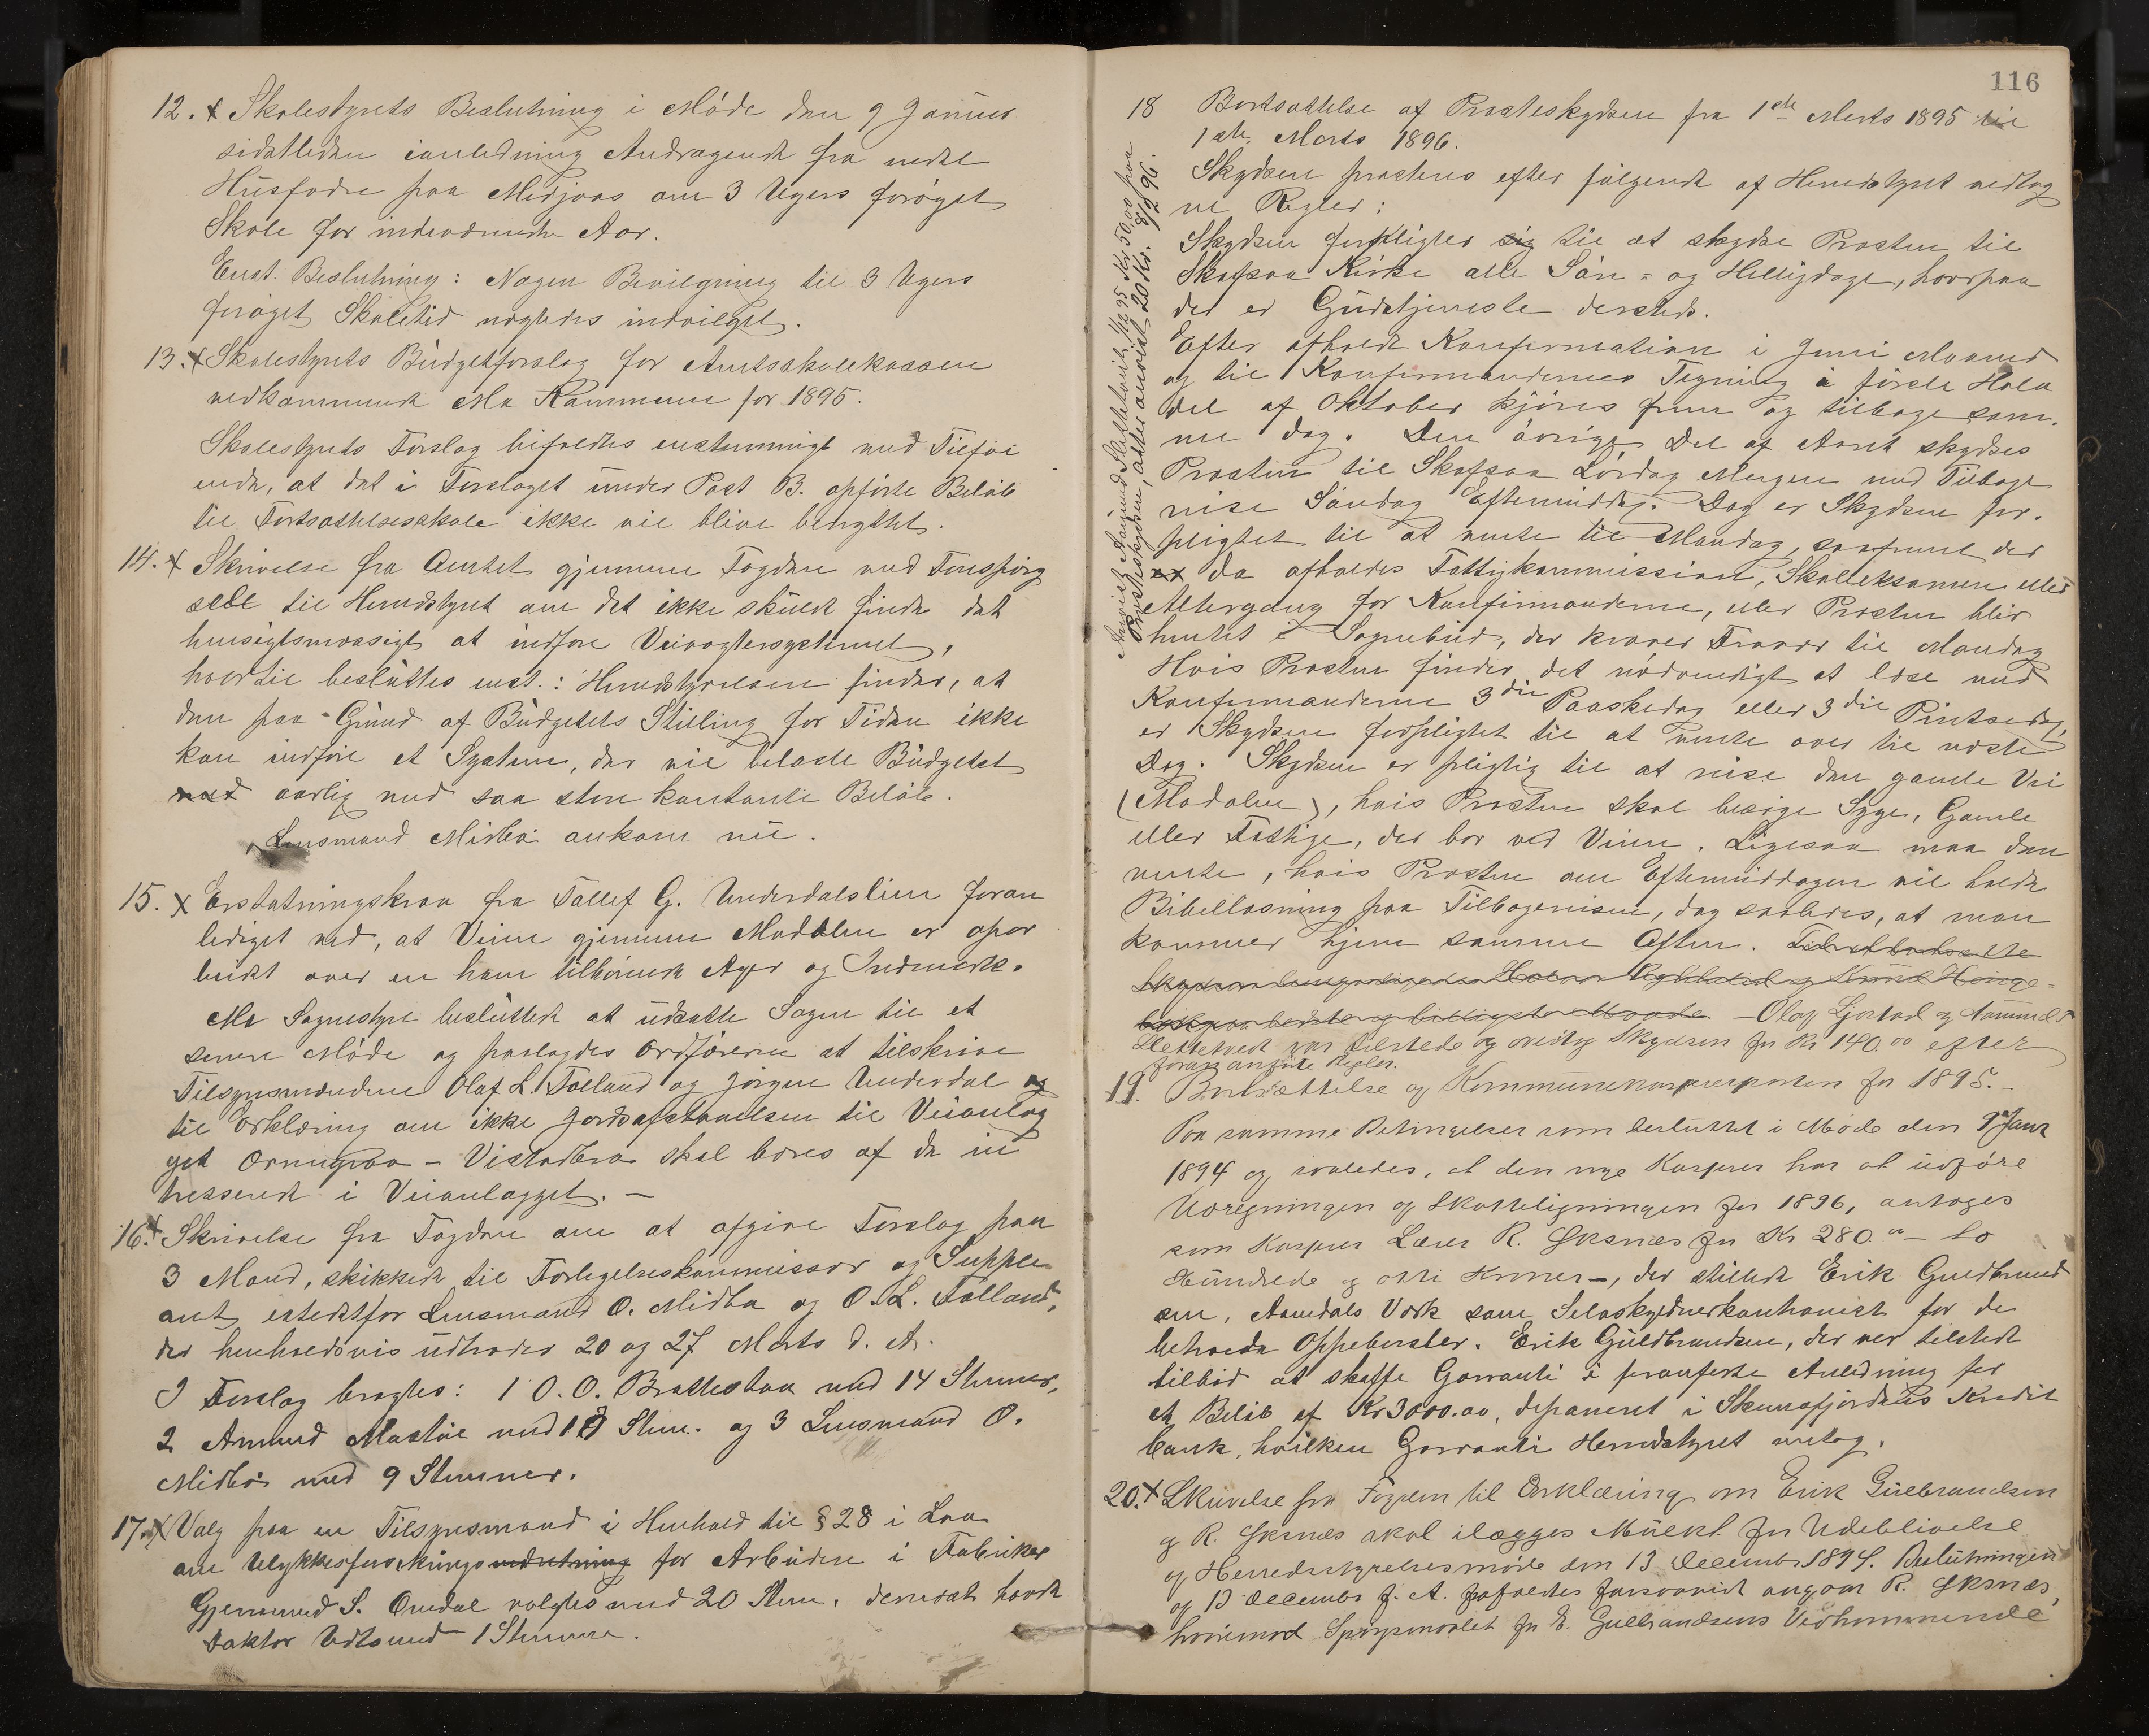 12. x Skolestyrets Beslutning i Møde den 9 Januar
sidstleden ianledning Andragende fra nedel
Husfædre paa Midjaas om 3 Ugers forøget
Skole for indeværende Aar.
Enst. Beslutning: Nogen Bevilgning til 3 Ugers
forøget Skoletid nægtedes indvilget.
13. x Skolestyrets Budgetforslag for Amtsskolekassen
vedkommende Mo Kommune for 1895.
Skolestyrets Forslag bifaldtes enstemmigt med Tilføi
ende, at det i Forslaget under Post B. opførte Beløb
til Fortsættelsesskole ikke vil blive benyttet.
14. x Skrivelse fra Amtet gjennem Fogden med Forespørg
sel til Herredstyret om det ikke skulde finde det
hensigtsmæssigt at indføre Veivogtersystemet,
hvortil besluttes enst.: Herredstyrelsen finder, at
den paa Grund af Budgetets Stilling for Tiden ikke
kan indføre et System, der vil belaste Budgetet
med aarlig med saa store kontante Beløb.
Lensmand Midbø ankom nu.
15. x Erstatningskrav fra Tallef G. Underdalslien foran
lediget ved, at Veien gjennem Modalen er opar
beidet over en ham tilhørende Ager og Indmark.
Mo Sognestyre besluttede at udsætte Sagen til et
senere Møde og paalagdes Ordføreren at tilskrive
Tilsynsmændene Olaf L. Folland og Jørgen Underdal og
til Erklæring om ikke Jordafstaaelsen til Veianlæg
get Ormegraa - Vistadbra skal bæres af de in
tresserede i Veianlægget. -
16. x Skrivelse fra Fogden om at afgive Forslag paa
3 Mænd, skikkede til Forligelseskommissær og Supple
ant istedetfor Lensmand O. Midbø og O. L. Folland,
der henholdsvis udtræder 20 og 27 Marts d. A.
I Forslag bragtes: 1 O. O. Brattestaa med 14 Stemmer,
2 Amund med Stem. og 3 Lensmand O.
Midbø med 9 Stemmer.
17. x Valg paa en Tilsynsmand i Henhold til § 28 i Lov
om Ulykkesforsikrings for Arbeidere i Fabriker
Gjermund S. Omdal valgtes med 20 Stem. desuden havde
Faktor Udtsund 1 Stemme.
116
18 Bortsættelse af Prosteskydsen fra 1ste Marts 1895 til
1ste Marts 1896.
Skydsen præsteres efter følgende af Herredstyret vedtag
ne Regler:
Skydsen forpligter sig til at skydse Prosten til
Skafsaa Kirke alle Søn- og Helligdage, hvorpaa
der er Gudstjeneste dersteds.
Efter afholdt Konfirmation i Juni Maaned
og til Konfirmandernes Tegning i første Halv
del af Oktober kjøres frem og tilbage sam.
me dag. Den øvrige Del af Aaret skydses
Prosten til Skafsaa Lørdag Morgen med Tilbage
reise Søndag Eftermiddag. Dog er Skydsen for.
pligtet til at vente til Mandag, saafremt der
er da afholdes Fattigkommission, Skoleeksamen eller
Altergang for Konfirmanderne, eller Prosten blir
hentet i Sognebud, der kræver Fravær til Mandag
Hvis Prosten finder det nødvendigt at læse med
Konfirmanderne 3die Paaskedag eller 3die Pintsedag,
er Skydsen forpligtet til at vente over til næste
Dag. Skydsen er pligtig til at reise den gamle Vei
(Modalen), hvis Prosten skal besøge Syge, Gamle
eller Fattige, der bor ved Veien. Ligesaa maa den
vente, hvis Prosten om Eftermiddagen vil holde
Bibellæsning paa Tilbagereisen, dog saaledes, at man
kommer hjem samme Aften. Til at bortsætte
Skydsen og Henge-
paa bedste og billigste Maade. - Olav Gostad og Aamund
Slettetveit var tilstede og overtog Skydsen for Kr 140.00 efter
foran anførte Regler.
Anvist Aamund Slettetveit 11/9 95 Kr. 50,00 paa
Prosteskydsen, atter anvist 20 Kr. 8/2 96.
19. Bortsættelse af Kommunekasserposten for 1895. -
Paa samme Betingelser som besluttet i Møde den 9de Janr
1894 og saaledes, at den nye Kasserer har at udføre
Udregningen og Skatteligningen for 1896, antoges
som Kasserer Lærer R. Eksnæs for Kr 280.00 - to
Hundrede og otti Kroner -, der stillede Erik Guldbrand
sen, Aamdals Værk som Selvskyldnerkautionist for de
betroede Oppebørsler. Erik Guldbrandsen, der var tilstede
tilbød at skaffe Garranti i foranførte Anledning for
et Beløb af Kr 3000.00, deponeret i Skiensfjordens Kredit
bank, hvilken Garranti Herredstyret antog.
20. x Skrivelse fra Fogden til Erklæring om Erik Gulbrandsen
og R. Eksnæs skal ilægges Mulkt for Udeblivelse
af Herredsstyrelsesmøde den 13 December 1894. Beslutningen
af 13 December f. A. frafaldtes forsaavidt angaar R. Eksnæs,
hvorimod Spørgsmaalet for E. Gulbrandsens Vedkommende